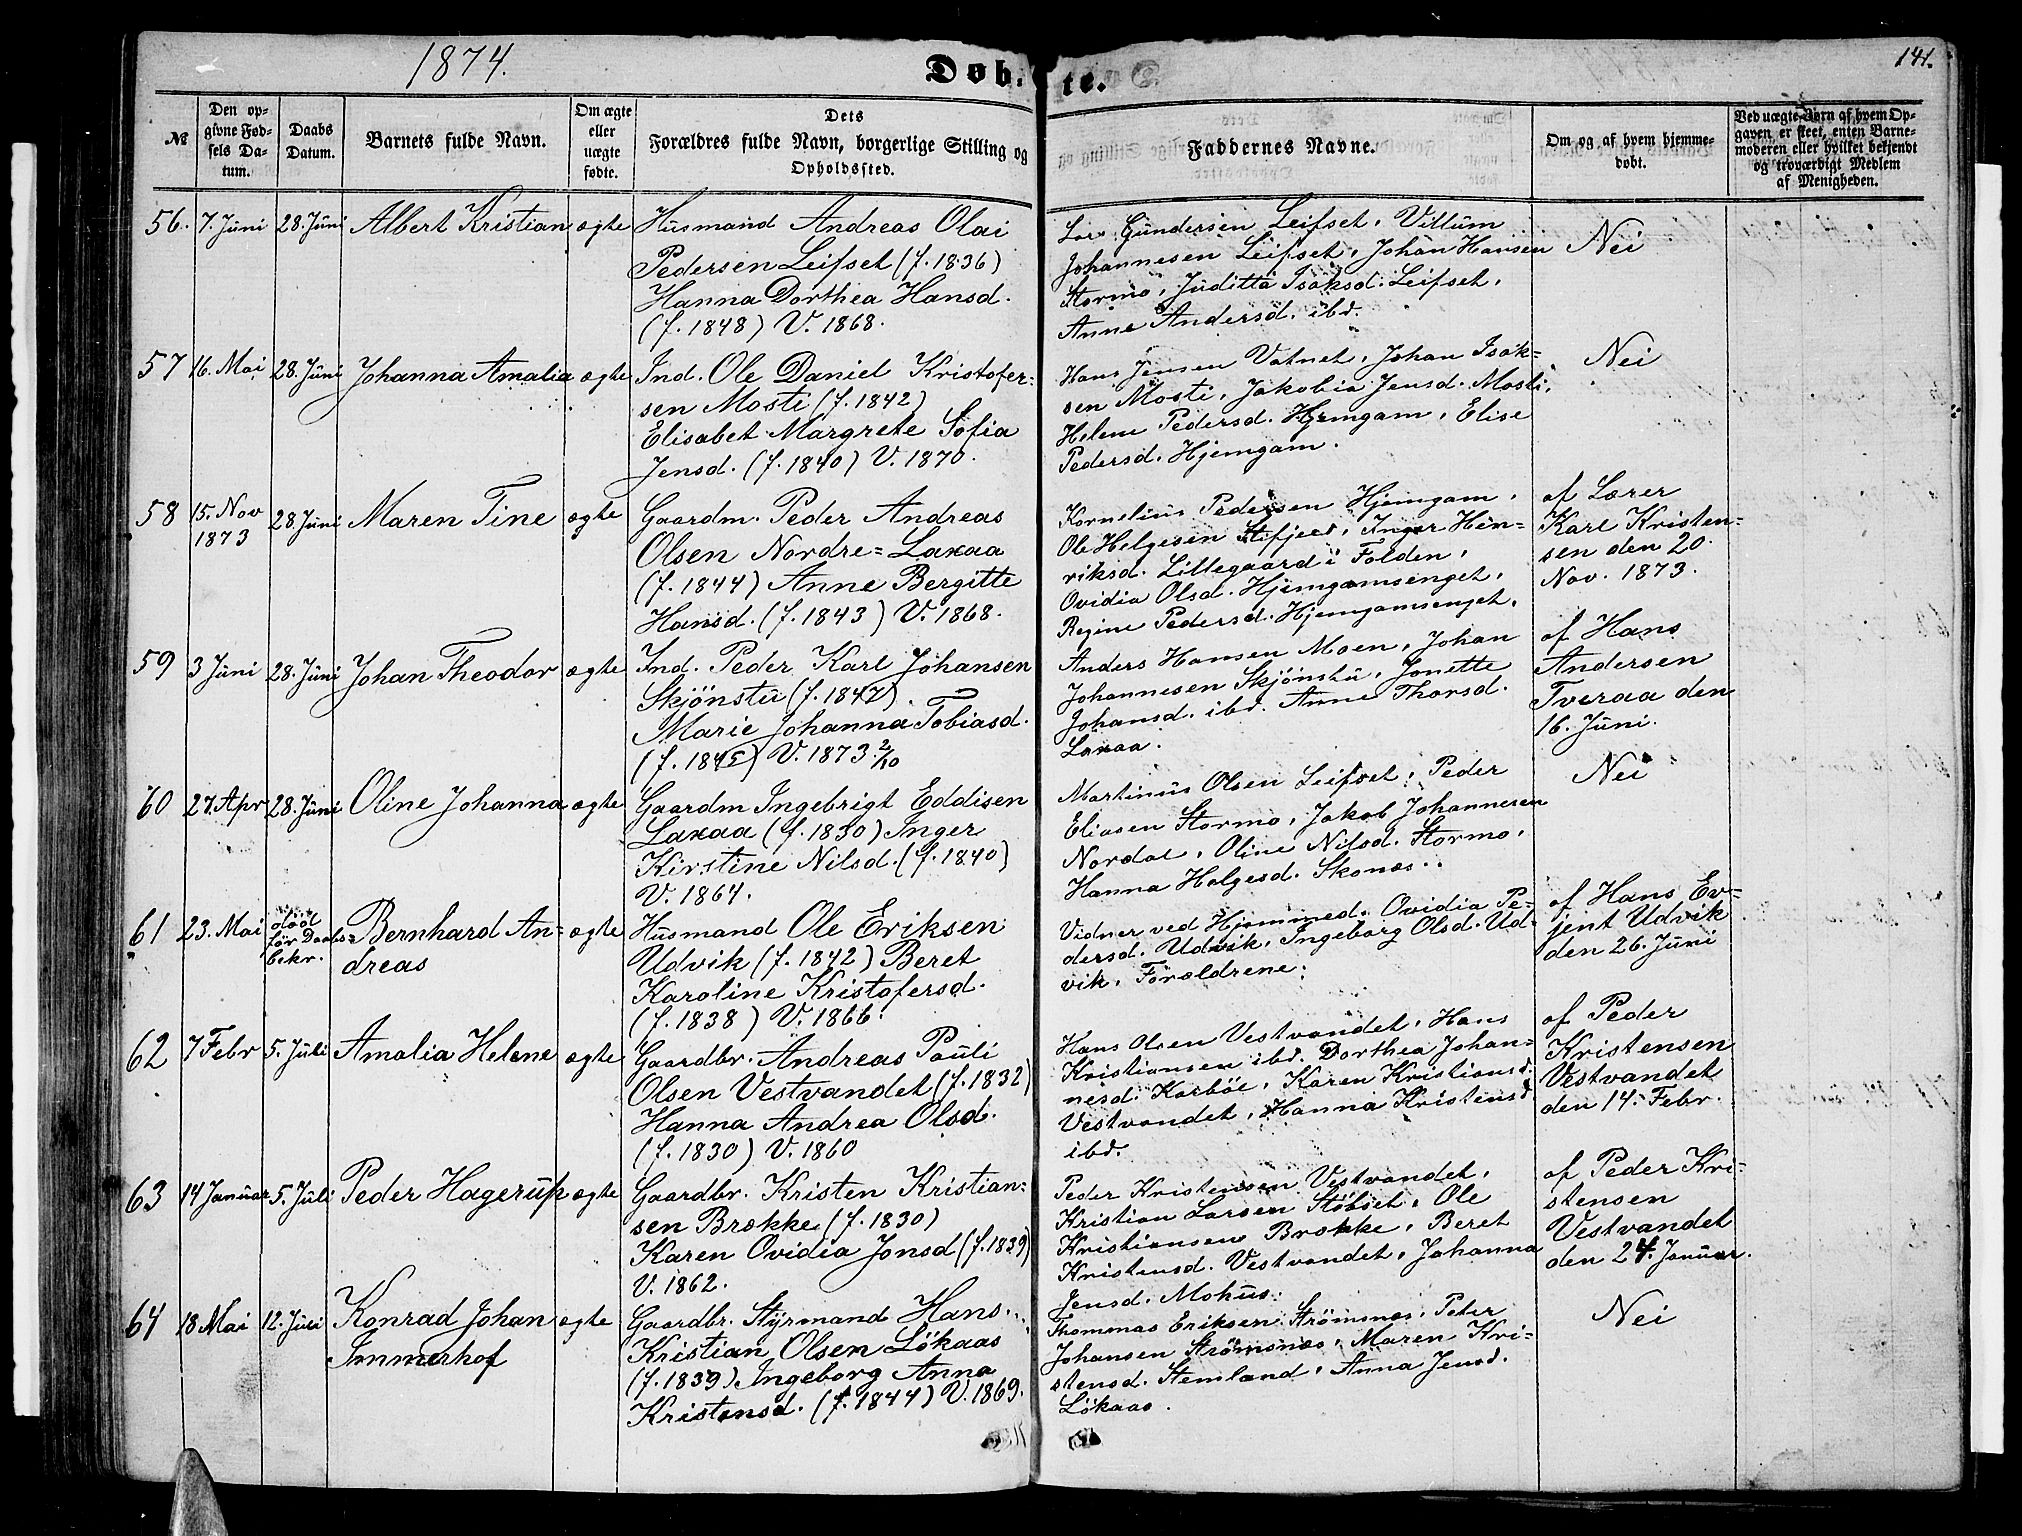 1874.
Døbte.
141.
№
Den opgivne Fødsels Datum.
Daabs Datum.
Barnets fulde Navn.
Om ægte eller uægte fødte.
Dets Forældres fulde Navn, borgerlige Stilling og Opholdssted.
Faddernes Navne.
Om og af hvem hjemmedøbt.
Ved uægte Børn af hvem Opgaven er skeet, enten Barnemoderen eller hvilket bekjendt og troværdigt Medlem af Menigheden.
56. 7. Juni 28. Juni Albert Kristian ægte
Husmand Andreas Olai
Pedersen Leifset (f. 1836)
Hanna Dorthea Hansd.
(f. 1848) V. 1868.
Lars Gundersen Leifset, Villum
Johannesen Leifset, Johan Hansen
Stormo, Juditta Isaksd. Leifset,
Anne Andersd. ibd.
Nei
57 16. Mai 28. Juni Johanna Amalia ægte
Ind. Ole Daniel Kristofer=
sen Mosti (f. 1842)
Elisabet Margrete Sofia
Jensd. (f. 1840) V. 1870.
Hans Jensen Vatnet, Johan Isak=
sen Mosti, Jakobia Jensd. Mosti,
Helene Pedersd. Hjemgam, Elise
Pedersd. Hjemgam.
Nei
58 15. Nov 1873 28. Juni Maren Tine ægte
Gaardm. Peder Andreas
Olsen Nordre=Laxaa
(f. 1844) Anne Bergitte
Hansd. (f. 1843) V. 1868.
Kornelius Pedersen Hjemgam,
Ole Helgesen Stifjeld, Inger Hen=
riksd. Lillegaard i Folden,
Ovidia Olsd. Hjemgamsenget,
Regine Pedersd. Hjemgamsenget.
af Lærer
Karl Kristen=
sen den 20.
Nov. 1873.
59 3 Juni 28. Juni Johan Theodor ægte
Ind. Peder Karl Johansen
Skjönstu (f. 1847).
Marie Johanna Tobiasd.
(f. 1845) V. 1873 2/10
Anders Hansen Moen, Johan
Johannesen Skjönstu, Jonette
Johansd. ibd. Anne Thorsd.
Laxaa.
af Hans
Andersen
Tveraa den
16. Juni.
60 27. Apr 28. Juni Oline Johanna ægte
Gaardm Ingebrigt Eddisen
Laxaa (f. 1830) Inger
Kirstine Nilsd. (f. 1840)
V. 1864.
Martinus Olsen Leifset, Peder
Eliasen Stormo, Jakob Johannesen
Nordal, Oline Nilsd. Stormo,
Hanna Helgesd. Skonæs.
Nei
61 23. Mai død
før Daabs=
bekr.
Bernhard An=
dreas
ægte
Husmand Ole Eriksen
Udvik (f. 1842) Beret
Karoline Kristofersd.
(f. 1838) V. 1866.
Vidner ved Hjemmed. Ovidia Pe=
dersd. Udvik, Ingeborg Olsd. Ud=
vik, Forældrene.
af Hans Ev=
jent Udvik
den 26. Juni
62 7 Febr 5. Juli Amalia Helene ægte
Gaardbr. Andreas Pauli
Olsen Vestvandet (f. 1832)
Hanna Andrea Olsd.
(f. 1830) V. 1860
Hans Olsen Vestvandet, Hans
Kristiansen ibd. Dorthea Johan=
nesd. Karbøl, Karen Kristiansd.
Vestvandet, Hanna Kristensd
ibd.
af Peder
Kristensen
Vestvandet
den 14. Febr.
63 14 Januar 5. Juli Peder Hagerup ægte
Gaardbr. Kristen Kristian=
sen Brække (f. 1830)
Karen Ovidia Jonsd (f. 1839)
V. 1862.
Peder Kristensen Vestvandet,
Kristian Larsen Støbset, Ole
Kristiansen Brække, Beret
Kristensd. Vestvandet, Johanna
Jensd. Mohus.
af Peder Kri=
stensen
Vestvandet
den 24. Januar.
64 18 Mai 12. Juli Konrad Johan
Immerhof
ægte
Gaardbr. Styrmand Hans
Kristian Olsen Lökaas
(f. 1839) Ingeborg Anna
Kristensd. (f. 1844) V. 1869.
Thommas Eriksen Strömsnes, Peter
Johansen Strömsnæs, Maren Kri=
stensd. Stemland, Anna Jensd.
Lökaas.
Nei